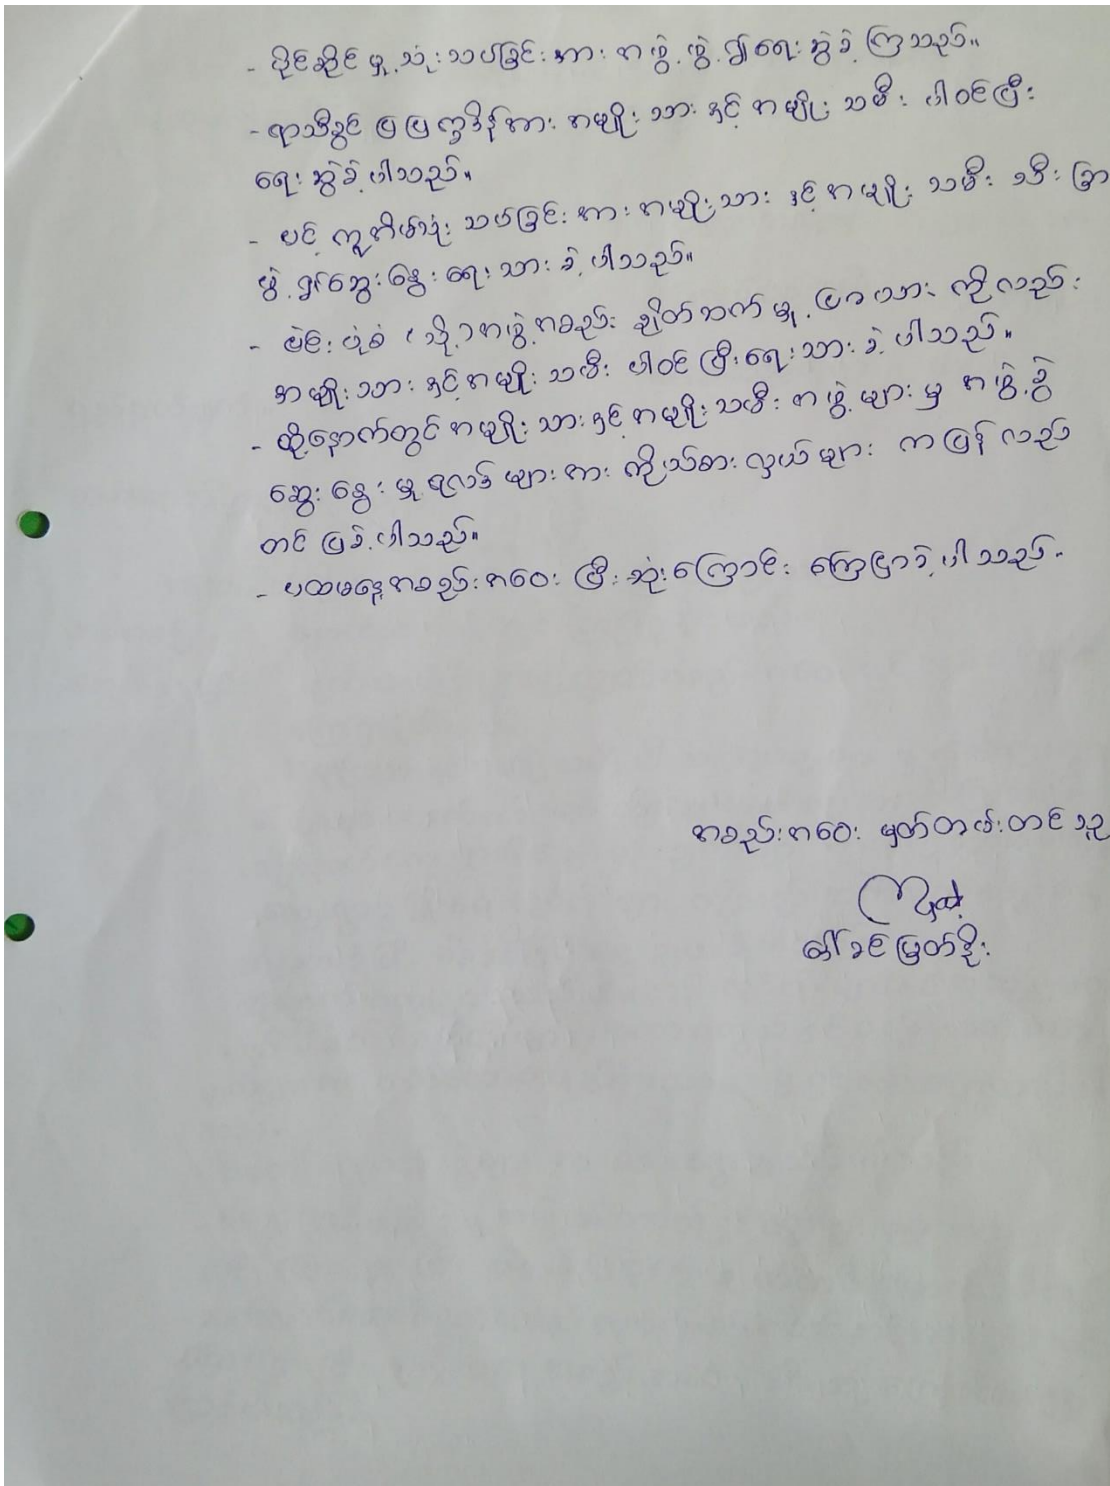 - ပိုင်ဆိုင်မှုသုံးသပ်ခြင်းအား အဖွဲ့ဖွဲ့၍ရေးဆွဲခဲ့ကြသည်။
- ရာသီခွင်ပြပြက္ခဒိန်အား အမျိုးသားနှင့်အမျိုးသမီး ပါဝင်ပြီး
ရေးဆွဲခဲ့ပါသည်။
- ပင့်ကူအိမ်သုံးသပ်ခြင်းအား အမျိုးသားနှင့်အမျိုးသမီး သီးခြာ
ဖွဲ့၍ဆွေးနွေးရေးသားခဲ့ပါသည်။
- ပဲင်းပုံစံ (သို့) အဖွဲ့အစည်းချိတ်ဆက်မှုပြဇယား ကိုလည်း
အမျိုးသားနှင့်အမျိုးသမီး ပါဝင်ပြီးရေးသားခဲ့ပါသည်။
- ထို့နောက်တွင်အမျိုးသားနှင့်အမျိုးသမီးအဖွဲ့များမှ အဖွဲ့ခွဲ
ဆွေးနွေးမှုရလဒ်များအား ကိုယ်စားလှယ်များ ကပြန်လည်
တင်ပြခဲ့ပါသည်။
- ပထမနေ့အစည်းအဝေး ပြီးဆုံးကြောင်း ကြေငြာခဲ့ပါသည်။
အစည်းအဝေး မှတ်တမ်းတင်သူ
ဒေါ်ခင်မြတ်စိုး